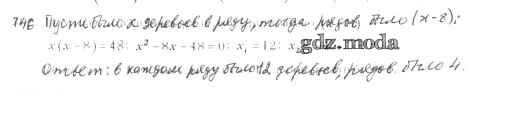 746 Пусть было x деревьев в ряду, тогда рядов было (x-8);
x(x-8)=48; x²-8x-48=0; x₁=12; x₂ gdz.moda
Ответ: в каждом ряду было 12 деревьев, рядов было 4.